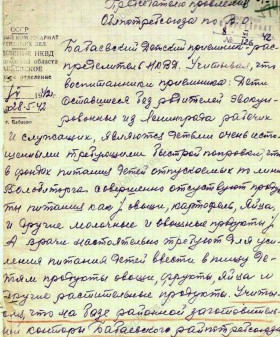 Председателю правления
Облпотребсоюза по В.О.
СССР
НКВД
отделение
28.5.42
г. Бабаево
Бабаевский Детский приемник-рас-
пределитель НКВД. Учитывая, что
воспитанники приемника: Дети
Оставшиеся без родителей эвакуи-
рованные из Ленинграда рабочих
и служащих, являются детьми очень исто-
щенными требующими быстрой поправки, что
в фондах питания детей отпускаемых по линии
совершенно отсутствуют продук-
ты питания как: овощи, картофель, яйца,
и другие молочные и овощные продукты.
А врачи настоятельно требуют для уси-
ления питания детей ввести в пищу де-
тям продукты овощи, фрукты яйца и
другие растительные продукты. Учиты-
вая, что на базе районной заготовитель-
ной конторы Бабаевского райпотребсоюза